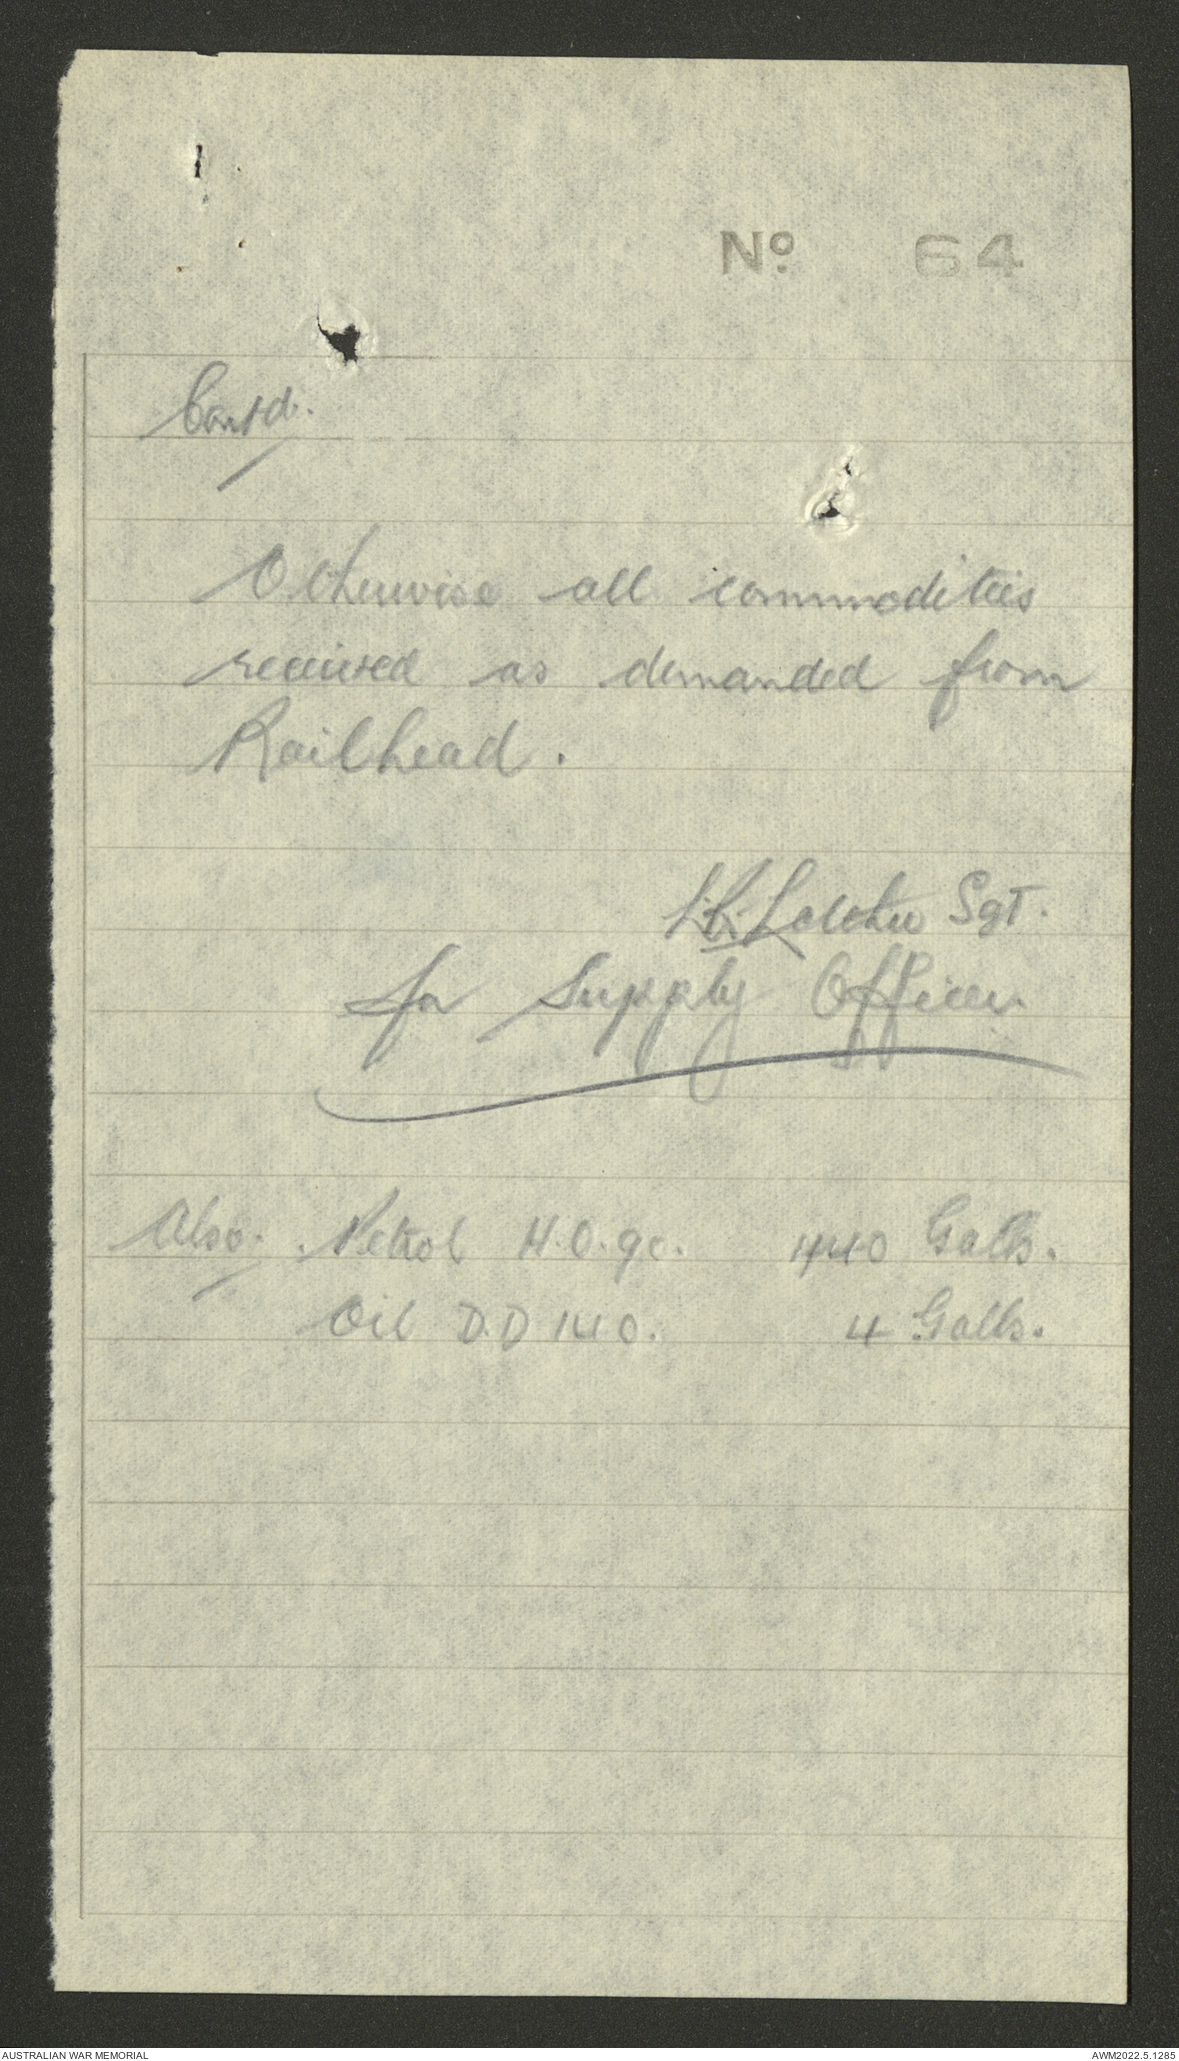 No. 64
Contd.
Otherwise all commodities
received as demanded from
Railhead.
Sgt.
for Supply Officer
Also. Petrol H.O.90. 440 Galls.
Oil D.D 140. 4 Galls.
AUSTRALIAN WAR MEMORIAL
AWM2022.5.1285